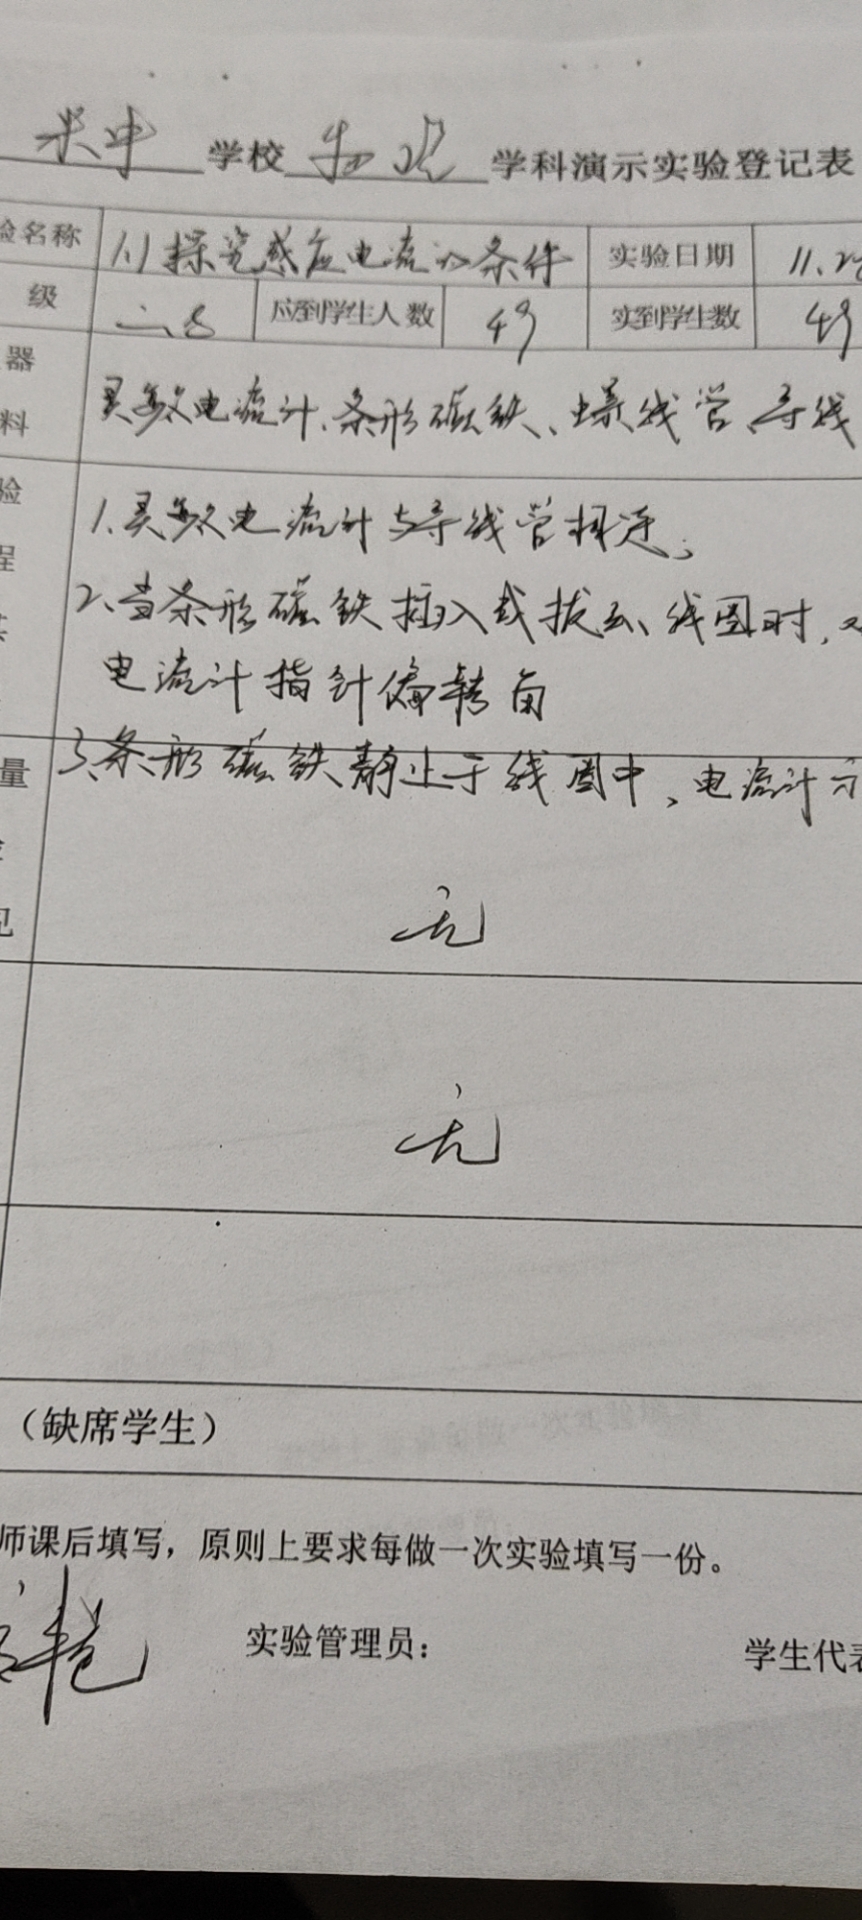 米中学校物理学科演示实验登记表
验名称 1.1探究感应电流的条件 实验日期 11.28
级 二、8 应到学生人数 49 实到学生数 49
器
料 灵敏电流计、条形磁铁、螺线管、导线
验 1.灵敏电流计与导线管相连;
程
2.当条形磁铁插入或拔出、线圈时,
电流计指针偏转角
量 3.条形磁铁静止于线圈中、电流计示
见 无
无
(缺席学生)
师课后填写,原则上要求每做一次实验填写一份。
实验管理员: 学生代表